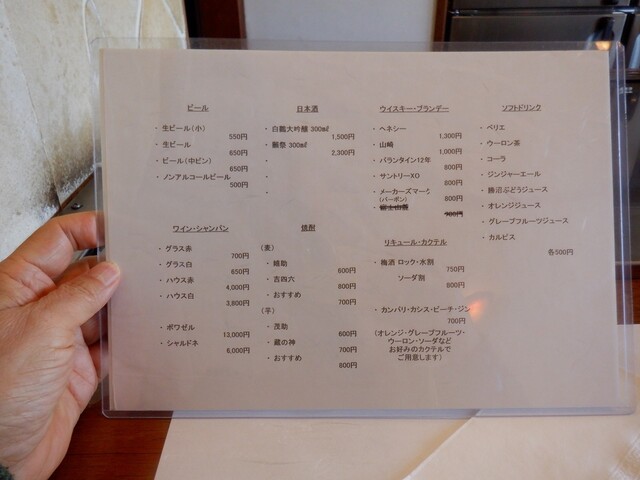 ビール
・ 生ビール(小)
550円
・ 生ビール
650円
・ ビール(中ビン)
650円
・ ノンアルコールビール
500円
日本酒
・ 白龍大吟醸 300㎖
1,500円
・ 獺祭 300㎖
2,300円
・
・
・
ウイスキー・ブランデー
・ ヘネシー
1,300円
・ 山崎
1,000円
・ バランタイン12年
800円
・ サントリーXO
800円
・ メーカーズマーク
(バーボン) 800円
・ 富士山麓
900円
ソフトドリンク
・ ペリエ
・ ウーロン茶
・ コーラ
・ ジンジャーエール
・ 勝沼ぶどうジュース
・ オレンジジュース
・ グレープフルーツジュース
・ カルピス
各500円
ワイン・シャンパン
・ グラス赤
700円
・ グラス白
650円
・ ハウス赤
4,000円
・ ハウス白
3,800円
・ ボワゼル
13,000円
・ シャルドネ
6,000円
焼酎
(麦)
・ 閻助
600円
・ 吉四六
800円
・ おすすめ
700円
(芋)
・ 茂助
600円
・ 蔵の神
700円
・ おすすめ
800円
リキュール・カクテル
・ 梅酒 ロック・水割
750円
ソーダ割
800円
・ カンパリ・カシス・ピーチ・ジン
700円
(オレンジ・グレープフルーツ・
ウーロン・ソーダなど
お好みのカクテルで
ご用意します)